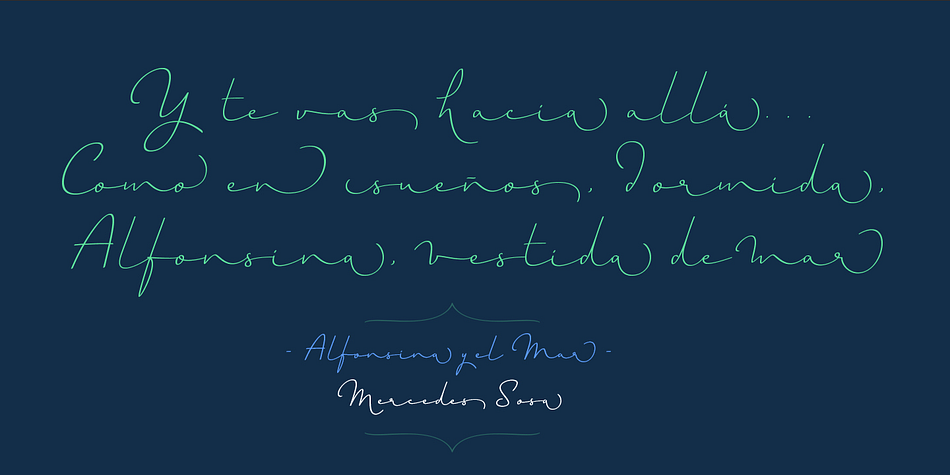 Y te vas hacia allá...
Como en sueños, dormida,
Alfonsina, vestida de mar
- Alfonsina y el Mar -
Mercedes Sosa